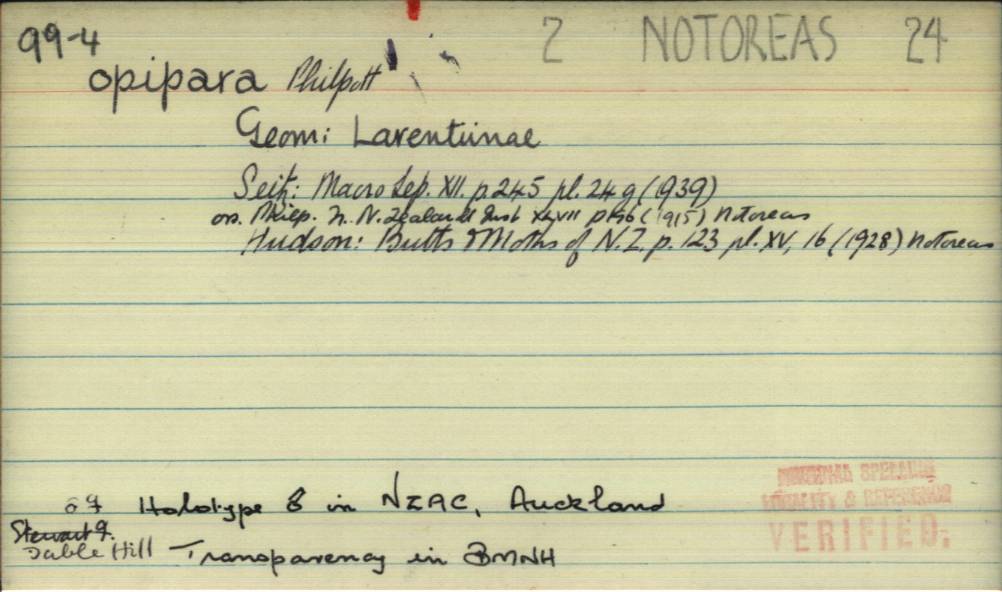 99-4 2 NOTOREAS 24
opipara Philpott
Geom: Larentiinae
Seitz: Macro Lep. XII. p.245 pl. 24 g (1939)
N. Zealand Inst XLVII p196 (1915) Notoreas
Hudson: Butts & Moths of N.Z. p. 123 pl. XV, 16 (1928) Notoreas
Holotype ♂ in NZAC, Auckland
Stewart I.
Table Hill Transparency in BMNH
ORIGINAL SPELLING
LOCALITY & REFERENCE
VERIFIED.